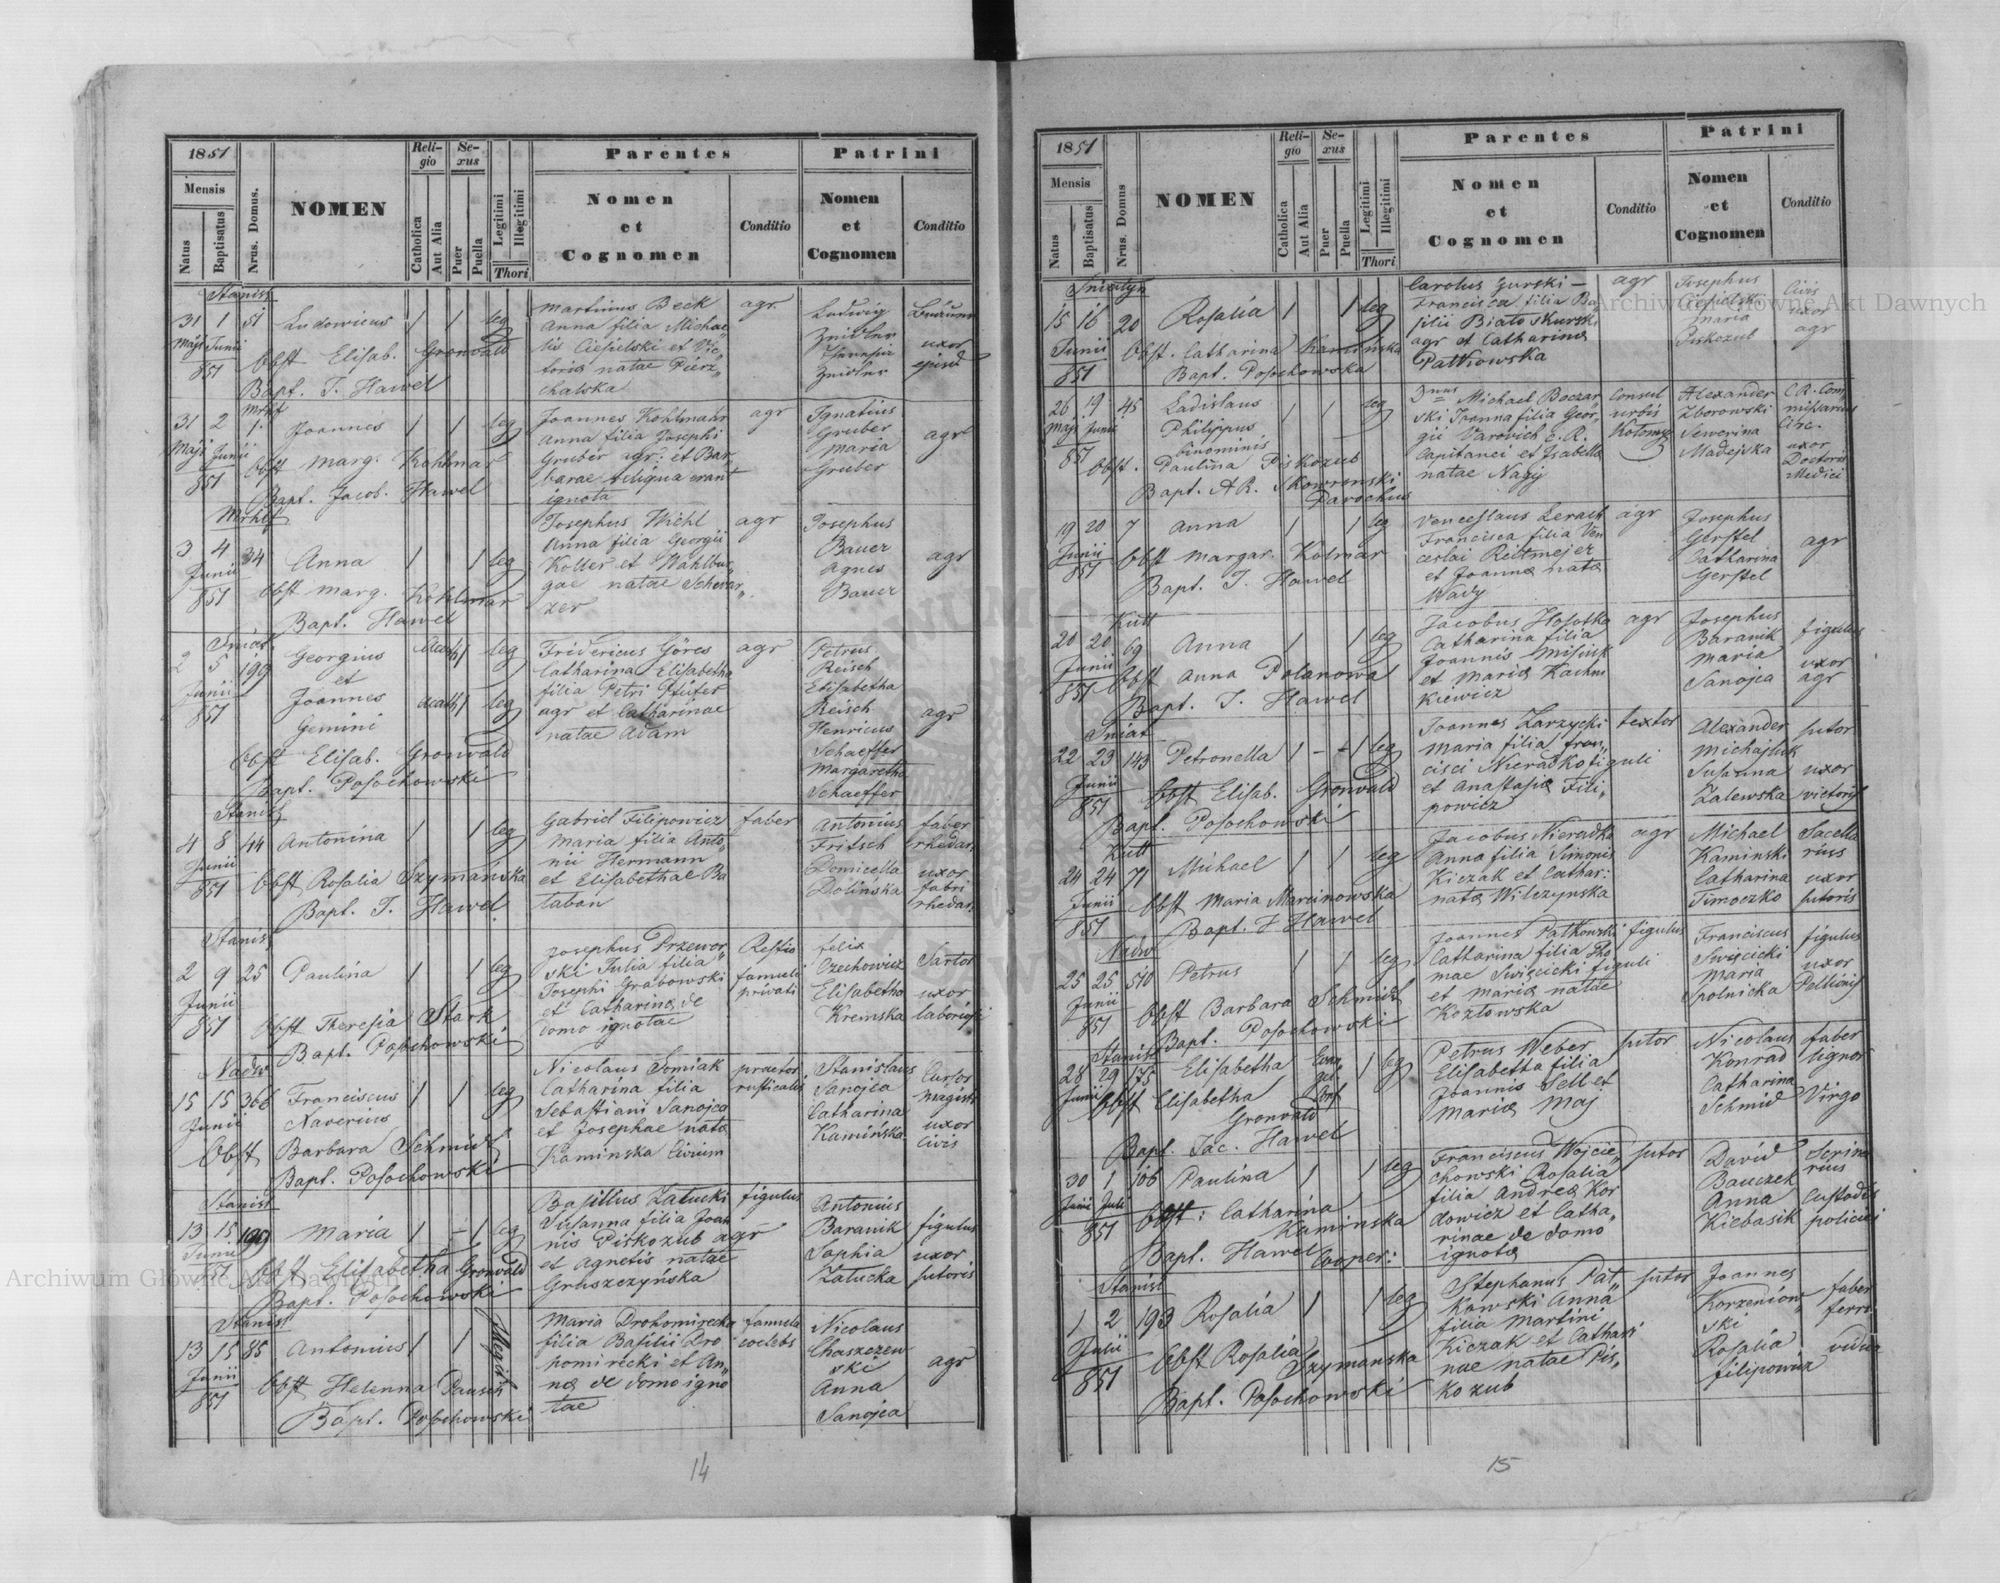 1851
Mensis
Natus
Baptisatus
Nrus. Domus.
NOMEN
Reli-
gio
Catholica
Aut Alia
Se-
xus
Puer
Puella
Legitimi
Illegitimi
Thori
Parentes
Nomen
et
Cognomen
Conditio
Patrini
Nomen
et
Cognomen
Conditio
Stanisl
31 1 51 Ludowicus 1 1 leg
Maji Junii
851
Obst Elisab. Gronvald
Bapt. J. Hawel
Martinus Beck
Anna filia Michae"
lis Ciesielski et Vic"
toria natae Pierz"
chalska
agr
Ludwig
Znidler
Theresia
Znidler
uxor
ejusd
Mrhlf
31 2 1. Joannes 1 1 leg
Maji Junii
851
Obst Marg. Kohlmar
Bapt. Jacob. Hawel
Joannes Kohlmann
Anna filia Josephi
Gruber agr: et Bar"
barae reliqua erant
ignota
agr
Ignatius
Gruber
Maria
Gruber
agr
Mrhlf
3 4 34 Anna 1 1 leg
Junii
851
Obst Marg. Kohlmar
Bapt. Hawel
Josephus Wichl
Anna filia Georgii
Koller et Wahlbur"
gae natae Schwar"
zer
agr
Josephus
Bauer
Agnes
Bauer
agr
Sniat
2 5 199 Georgius
et
Joannes
Gemini
leg
leg
Junii
851
Obst Elisab. Gronvald
Bapt. Posochowski
Fridericus Göres
Catharina Elisabetha
filia Petri Pfüfer
agr et Catharinae
natae Adam
agr
Petrus
Reisch
Elisabetha
Reisch
Henricus
Schaeffer
Margaretha
Schaeffer
agr
Stanisl
4 8 44 Antonina 1 1 leg
Junii
851
Obst Rosalia Szymanska
Bapt. J. Hawel
Gabriel Filipowicz
Maria filia Anto"
nii Hermann
et Elisabethae Ba
laban
faber
Antonius
Fritsch
Domicella
Dolinska
faber
rhedar.
uxor
fabri
rhedar.
Stanisl
2 9 25 Paulina 1 1 leg
Junii
851
Obst Theresia Stark
Bapt. Posochowski
Josephus Przewor"
ski Julia filia
Josephi Grabowski
et Catharina de
domo ignotae
Restio
famuli
privati
Felix
Czechowicz
Elisabetha
Kremska
Sartor
uxor
Nadw
15 15 366 Franciscus 1 1 leg
Junii Xaverius
Obst Barbara Schmidt
Bapt. Posochowski
Nicolaus Somiak
Catharina filia
Sebastiani Sanojca
et Josephae nata
Kaminska Civium
praetor
rusticalis
Stanislaus
Sanojca
Catharina
Kaminska
Cursor
magistr
uxor
civis
Stanisl
13 15 190 Maria 1 - 1 leg
Junii
851
Obst Elisabetha Gronvald
Bapt. Posochowski
Basilius Zalucki
Susanna filia Joan
nis Piskozub agr
et Agnetis natae
Gruszczyńska
figulus
Antonius
Baranik
Sophia
Zalucka
figulus
uxor
sutoris
Stanisl
13 15 85 Antonius 1 1 Illegit
Junii
851
Obst Helenna Pausch
Bapt. Posochowski
Maria Drohomirecka
filia Basilii Dro
homirecki et An"
na de domo igno
tae
famula
coelebs
Nicolaus
Chaszczew
ski
Anna
Sanojca
agr
14
1851
Mensis
Natus
Baptisatus
Nrus. Domus
NOMEN
Reli-
gio
Catholica
Aut Alia
Se-
xus
Puer
Puella
Legitimi
Illegitimi
Thori
Parentes
Nomen
et
Cognomen
Conditio
Patrini
Nomen
et
Cognomen
Conditio
Sniatyn
15 16 20 Rosalia 1 1 leg
Junii
851
Obst. Catharina Kaminska
Bapt. Posochowska
Carolus Gurski -
Francisca filia Ba"
silii Bialoskurski
agr et Catharina
Patkowska
agr
Josephus
Ciesielski
Maria
Piskozub
Civis
uxor
agr
26 19 45 Ladislaus 1 1 leg
Maji Junii Philippus
851 binominis
Obst. Paulina Piskozub
Bapt. AR. Skowronski
Parochus
Dnus Michael Boczar
ski Joanna filia Geor"
gii Varovich C. R.
Capitanei et Isabella
natae Nagy
Consul
urbis
Kolomy
Alexander
Zborowski
Sewerina
Madejska
C.R. Com
missarius
Circ.
uxor
Doctoris
Medici
19 20 7 Anna 1 1 leg
Junii
851
Obst Margar. Kolmar
Bapt. J. Hawel
Venceslaus Lerach
Francisca filia Ven
ceslai Reitmejer
et Joanna nata
Wady
agr
Josephus
Gerstel
Catharina
Gerstel
agr
Kutt
20 20 69 Anna 1 1 leg
Junii
851
Obst Anna Polanowa
Bapt. J. Hawel
Jacobus Hosotka
Catharina filia
Joannis Misiuk
et Maria Kachni
kiewicz
agr
Josephus
Baranik
Maria
Sanojca
figulus
uxor
agr
Sniat
22 23 143 Petronella 1 - - 1 leg
Junii
851
Obst Elisab. Gronvald
Bapt. Posochowski
Joannes Zarzycki
Maria filia Fran"
cisci Nieradko figuli
et Anastasia Fili"
powicz
textor
Alexander
Michajluk
Susanna
Zalewska
sutor
uxor
victoris
Kutt
24 24 71 Michael 1 1 leg
Junii
851
Obst Maria Marcinowska
Bapt. J Hawel
Jacobus Nieradko
Anna filia Simonis
Kiczak et Cathar:
nata Wilczynska
agr
Michael
Kaminski
Catharina
Timoczko
Sacella
rius
uxor
sutoris
Nadw
25 25 510 Petrus 1 1 leg
Junii
851
Obst Barbara Schmidt
Bapt. Posochowski
Joannes Patkowski
Catharina filia Tho
mae Swięcicki figuli
et Maria natae
Kozlowska
figulus
Franciscus
Swięcicki
Maria
Spolnicka
figulus
uxor
Pellionis
Stanisl
28 29 175 Elisabetha 1 leg
Junii
Obst Elisabetha
Gronvald
Bapt. Jac. Hawel
Petrus Weber
Elisabetha filia
Joannis Sell et
Maria Maj
sutor
Nicolaus
Konrad
Catharina
Schmid
faber
lignar
Virgo
30 1 106 Paulina 1 1 leg
Junii Juli
851
Obst: Catharina
Kaminska
Bapt. Hawel Cooper:
Franciscus Wojcie"
chowski Rosalia
filia Andrea Kor
dowicz et Catha"
rinae de domo
ignota
sutor
David
Bauczek
Anna
Kiebasik
Scrina
rius
Custodis
policiei
Stanisl
1 2 193 Rosalia 1 1 leg
Julii
851
Obst Rosalia
Szymanska
Bapt. Posochowski
Stephanus Pat"
kowski Anna
filia Martini
Kiczak et Cathari
nae natae Pis"
kozub
sutor
Joannes
Korzeniow"
ski
Rosalia
Filipowicz
faber
ferra
vidua
15
Archiwum Główne Akt Dawnych
Archiwum Główne Akt Dawnych